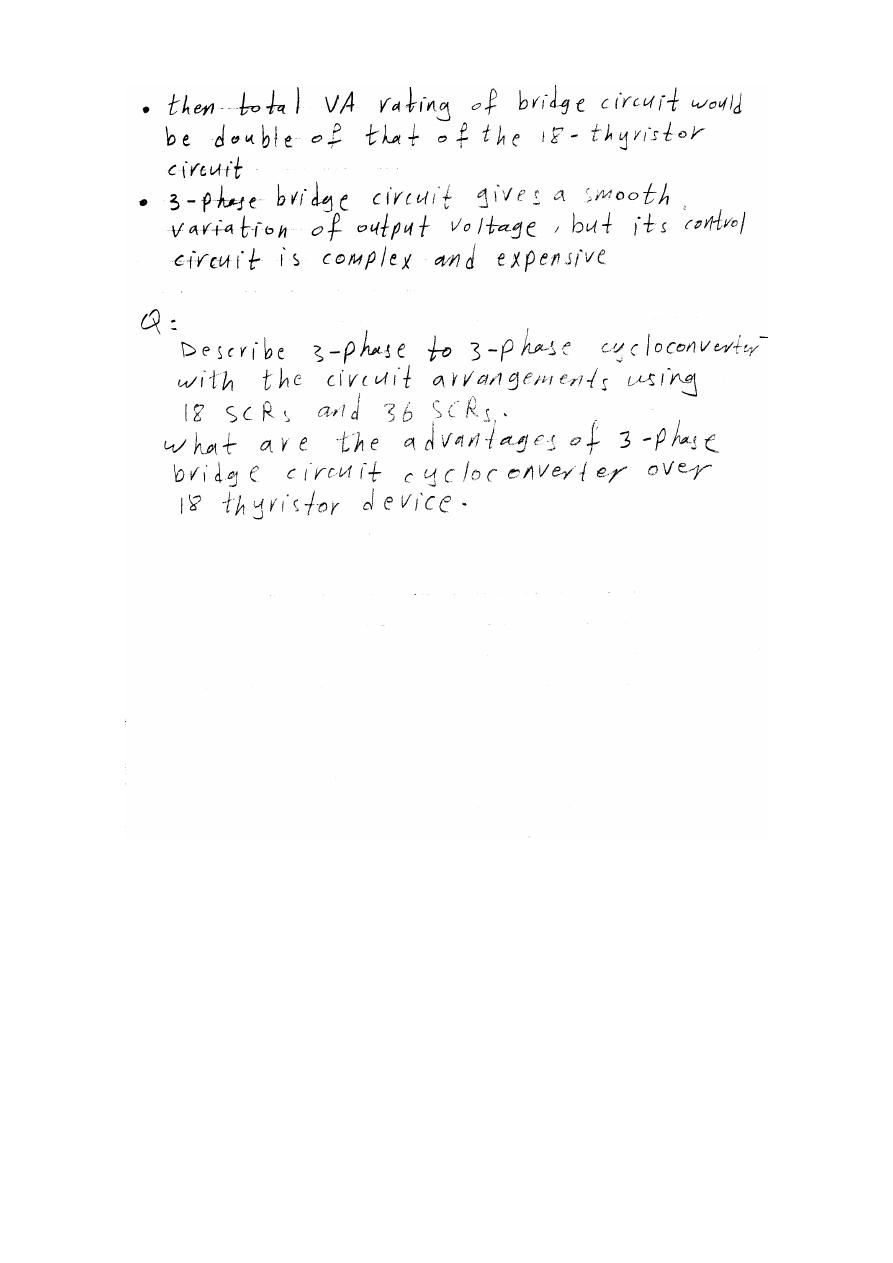 • then total VA rating of bridge circuit would
be double of that of the 18-thyristor
circuit
• 3-phase bridge circuit gives a smooth
variation of output voltage, but its control
circuit is complex and expensive
Q:
Describe 3-phase to 3-phase cycloconverter
with the circuit arrangements using
18 SCRs and 36 SCRs.
What are the advantages of 3-phase
bridge circuit cycloconverter over
18 thyristor device.